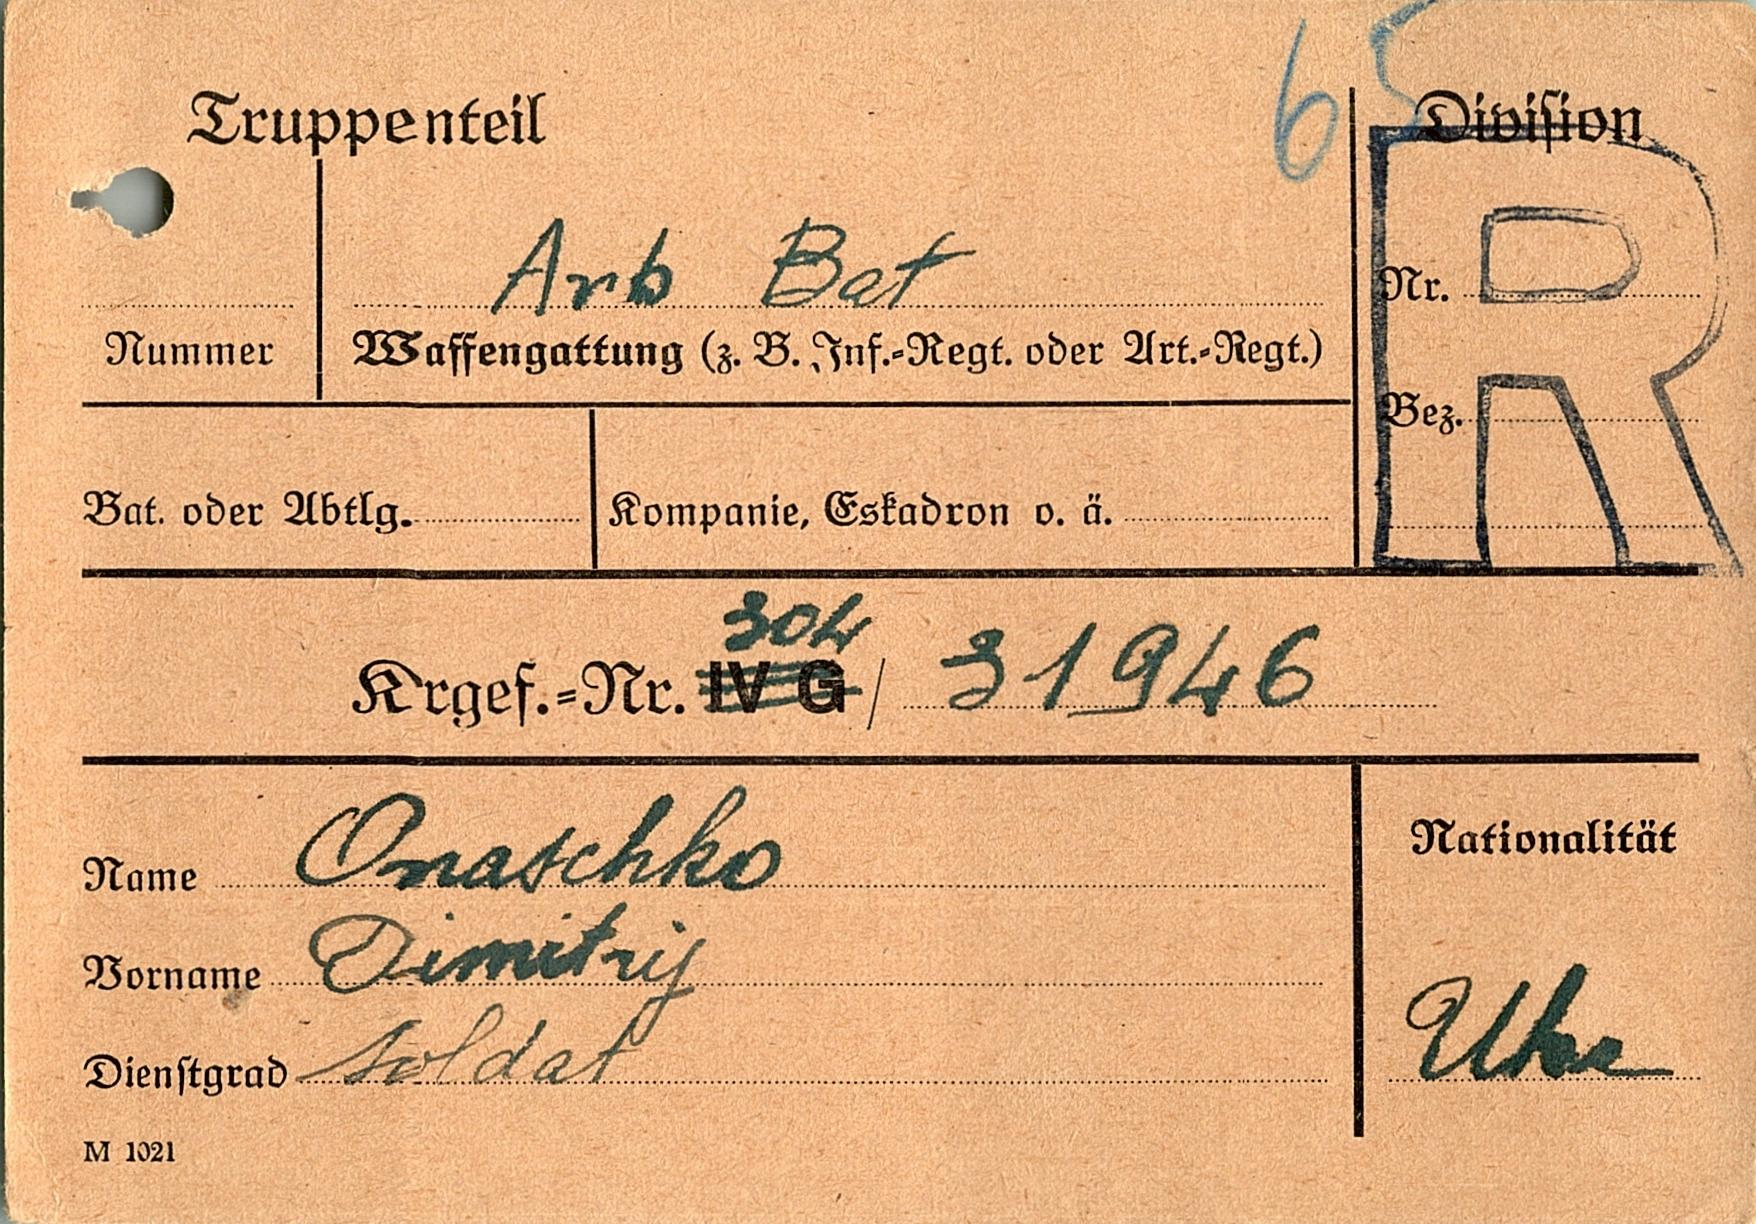 65
Truppenteil
Division
R
Arb Bat
Nr.
Nummer
Waffengattung (z. B. Inf.-Regt. oder Art.-Regt.)
Bez.
Bat. oder Abtlg.
Kompanie, Eskadron o. ä.
304
Krgef.-Nr. IV G / 31946
Name Onaschko
Nationalität
Vorname Dimitrij
Dienstgrad Soldat
Ukr
M 1021